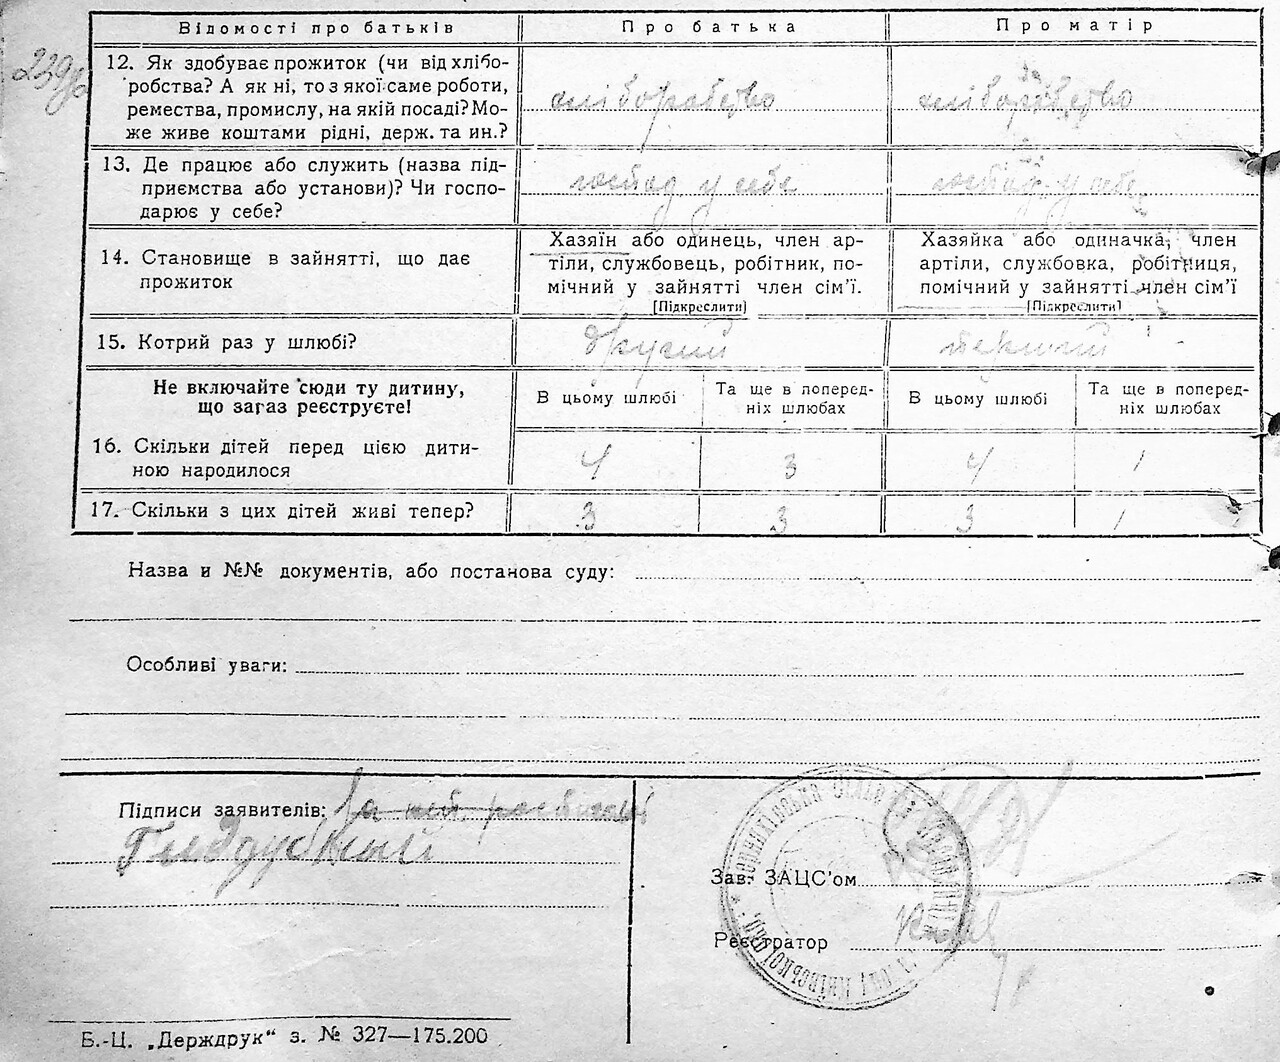 239
Відомості про батьків Про батька Про матір
12. Як здобуває прожиток (чи від хлібо-
робства? А як ні, то з якої саме роботи,
ремества, промислу, на якій посаді? Мо-
же живе коштами рідні, держ. та ин.?
хліборобство хліборобство
13. Де працює або служить (назва під-
приємства або установи)? Чи госпо-
дарює у себе?
господ у себе господ у себе
14. Становище в зайнятті, що дає
прожиток
Хазяїн або одинець, член ар-
тіли, службовець, робітник, по-
мічний у зайнятті член сім’ї.
[Підкреслити]
Хазяйка або одиначка, член
артіли, службовка, робітниця,
помічний у зайнятті член сім’ї
[Підкреслити]
15. Котрий раз у шлюбі? другий перший
Не включайте сюди ту дитину,
що загаз реєструєте!
В цьому шлюбі Та ще в поперед-
ніх шлюбах В цьому шлюбі Та ще в поперед-
ніх шлюбах
16. Скільки дітей перед цією дити-
ною народилося 4 3 4 1
17. Скільки з цих дітей живі тепер? 3 3 3 1
Назва и №№ документів, або постанова суду:
Особливі уваги:
Підписи заявителів:
Зав. ЗАЦС’ом
Реєстратор
Б.-Ц. „Держдрук“ з. № 327—175.200